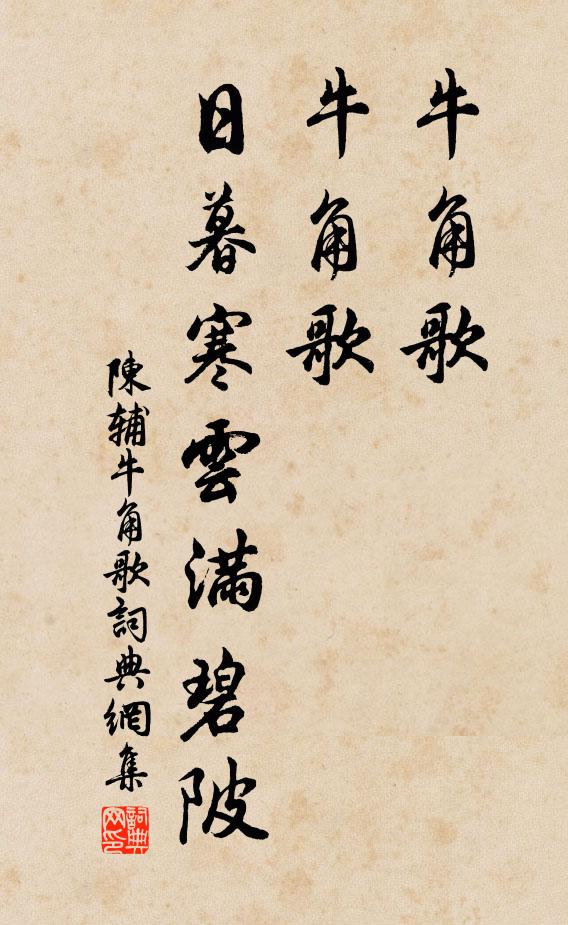 牛角歌
牛角歌
日暮寒雲滿碧陂
陳辅牛角歌詞典網集
詞典
网印